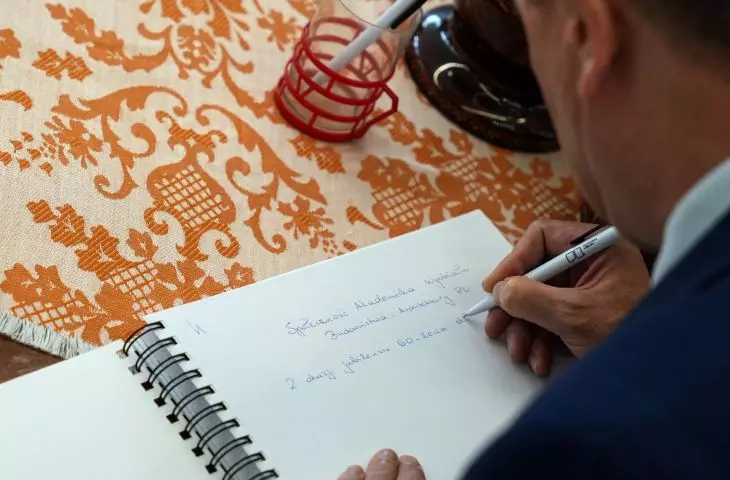 Społeczność Akademicka Wydziału
Budownictwa i Architektury PL
Z okazji jubileuszu 60-lecia